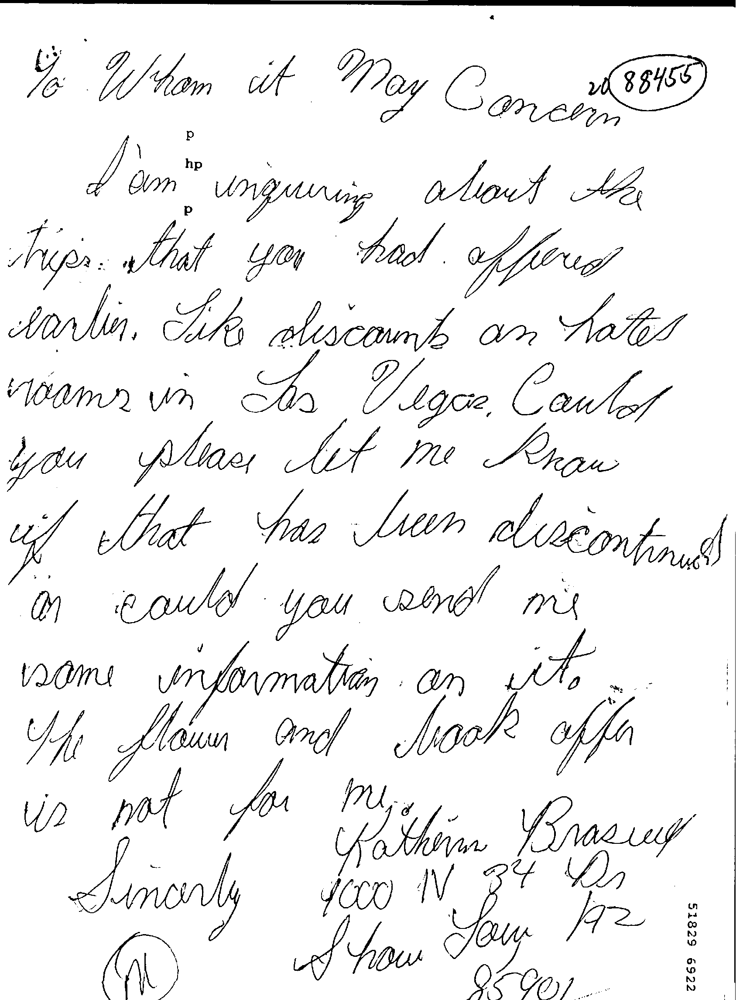 To Whom it May Concern
20 88455
p
hp
p
I am inquiring about the
trips that you had offered
earlier. Like discounts on hotel
rooms in Las Vegas. Could
you please let me know
if that has been discontinued
or could you send me
some information on it.
The flower and book offer
is not for me.
Sincerly
1000 N 34 Dr
Show Low AZ
85901
M
51829 6922